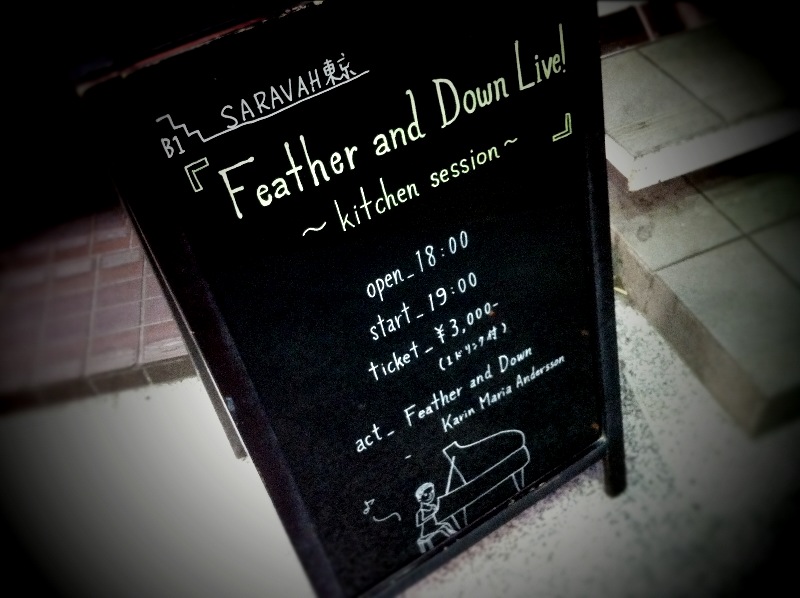 SARAVAH東京
B1
『Feather and Down Live!
~ kitchen session ~ 』
open_18:00
start_19:00
ticket_¥3,000-
(1ドリンク付)
act_ Feather and Down
Karin Maria Andersson